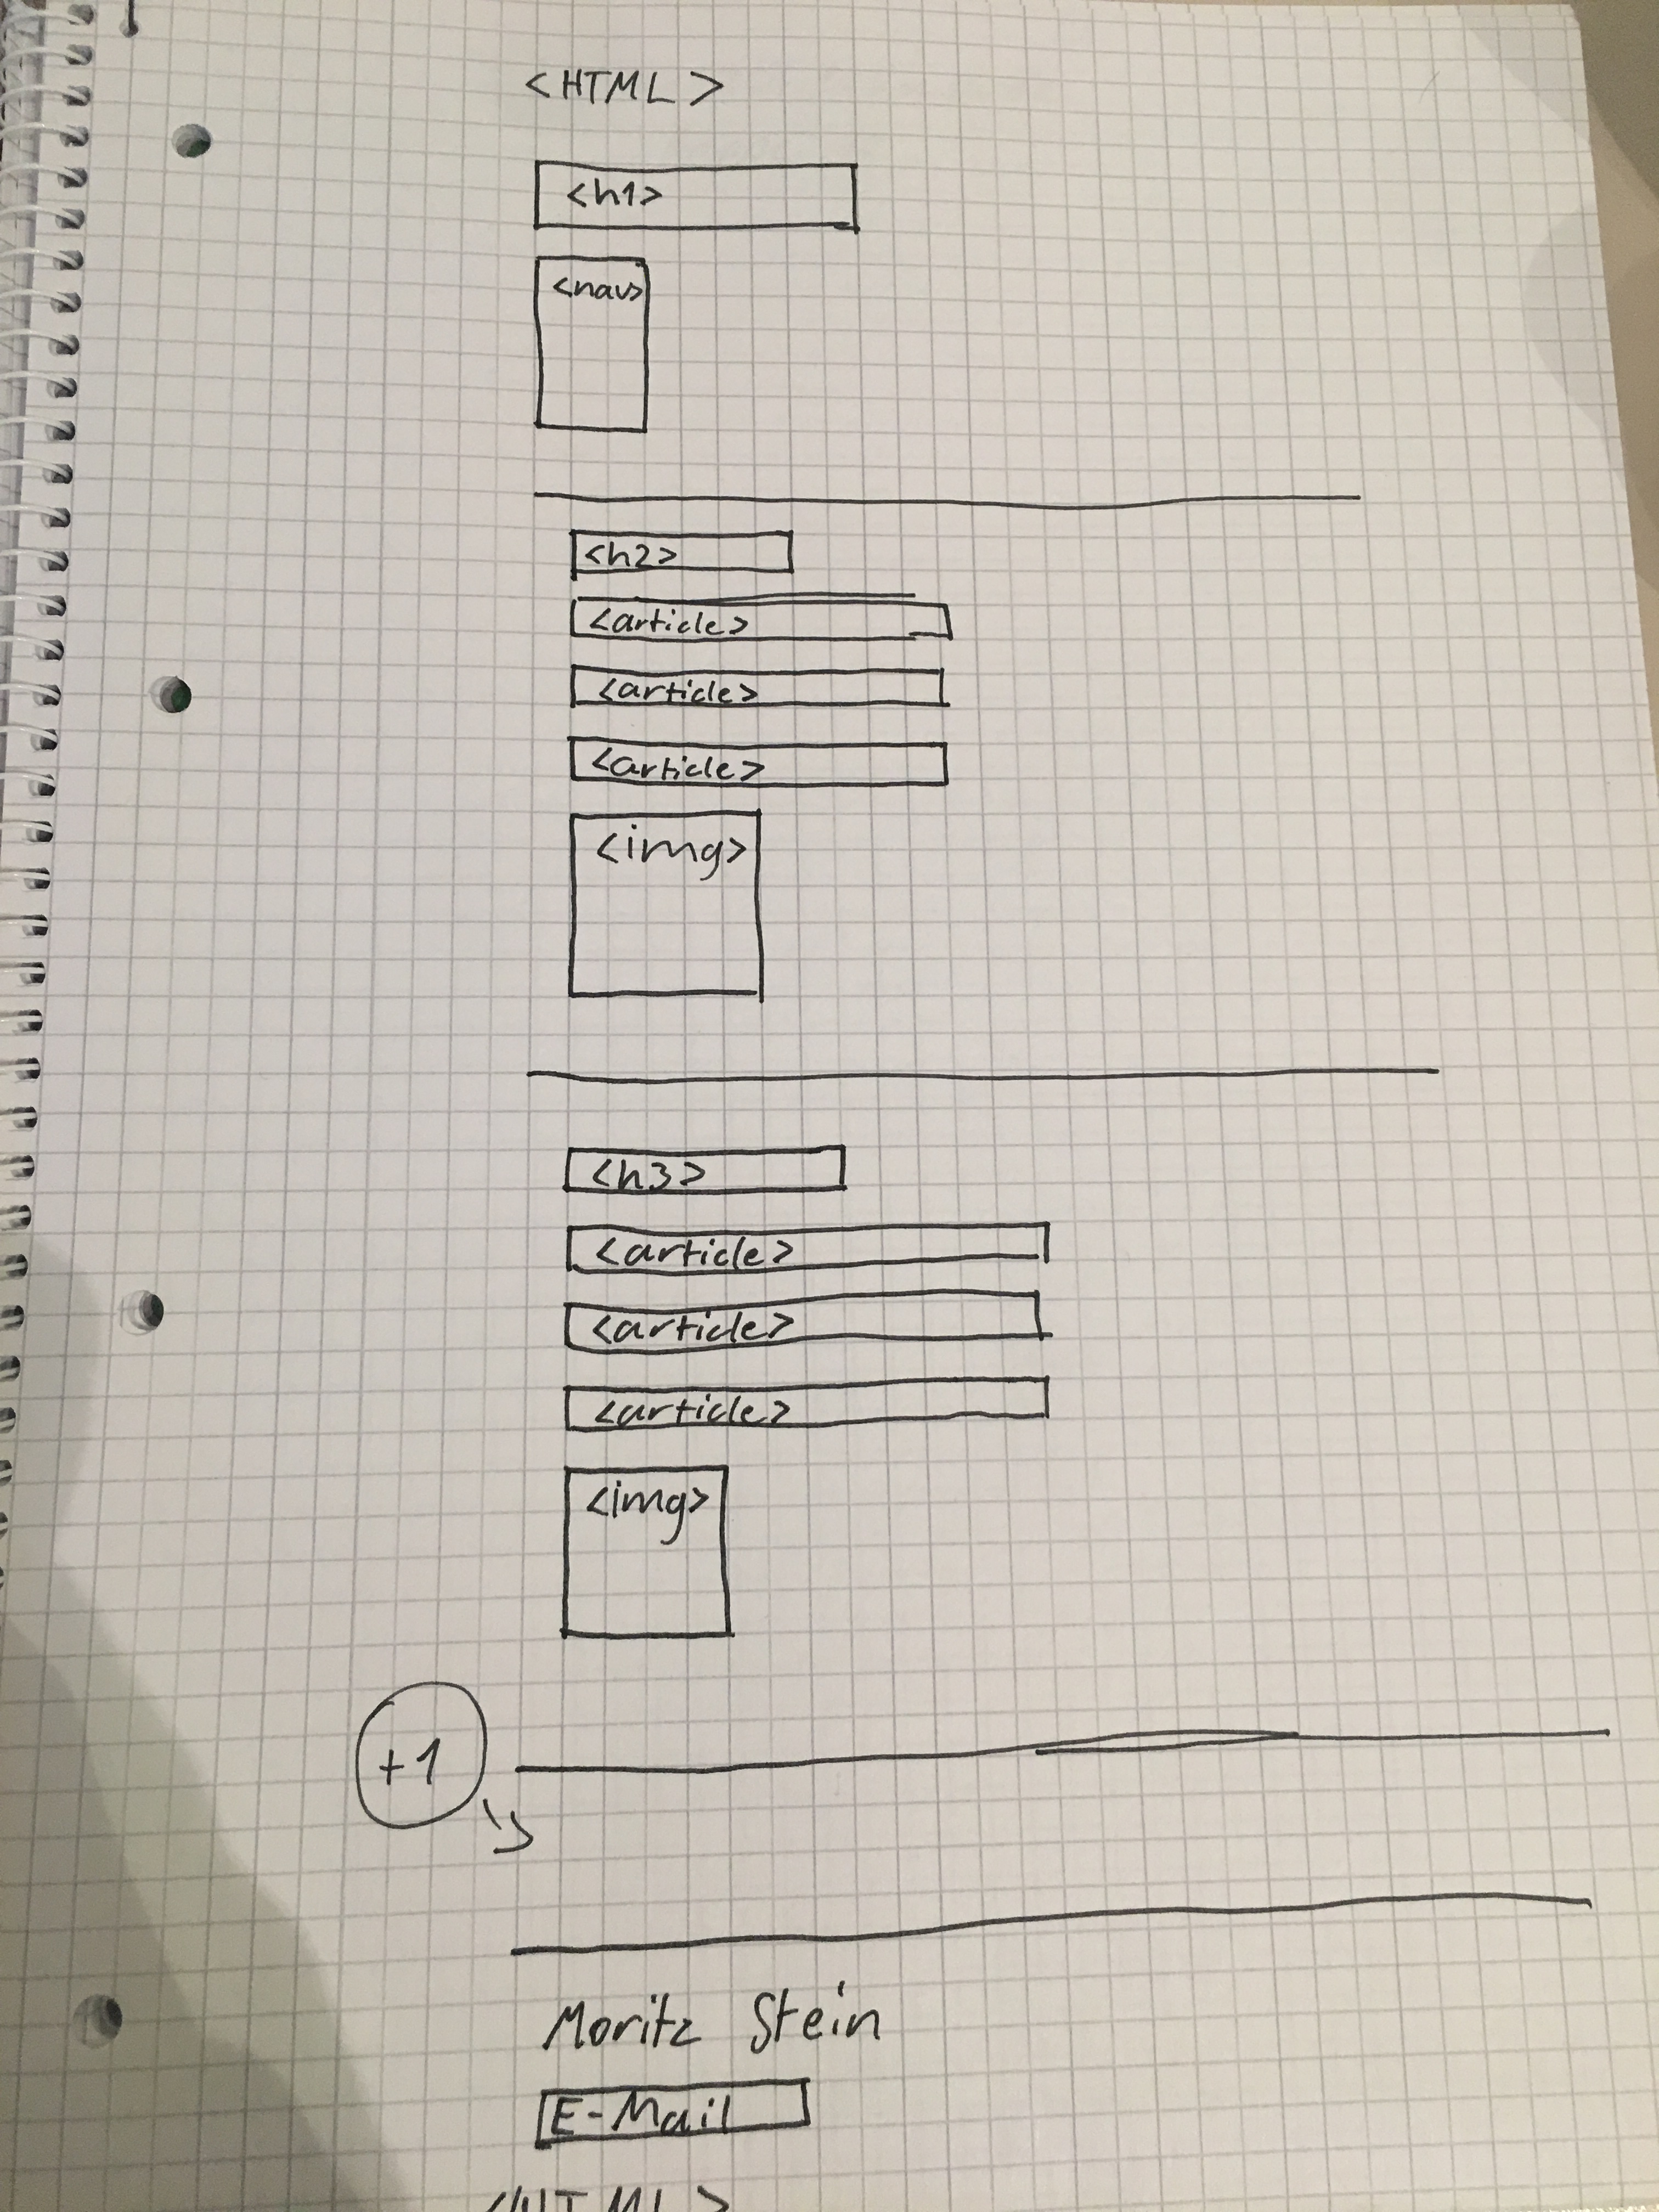 <HTML>
<h1>
<nav>
<h2>
<article>
<article>
<article>
<img>
<h3>
<article>
<article>
<article>
<img>
+1
Moritz Stein
E-Mail
</HTML>